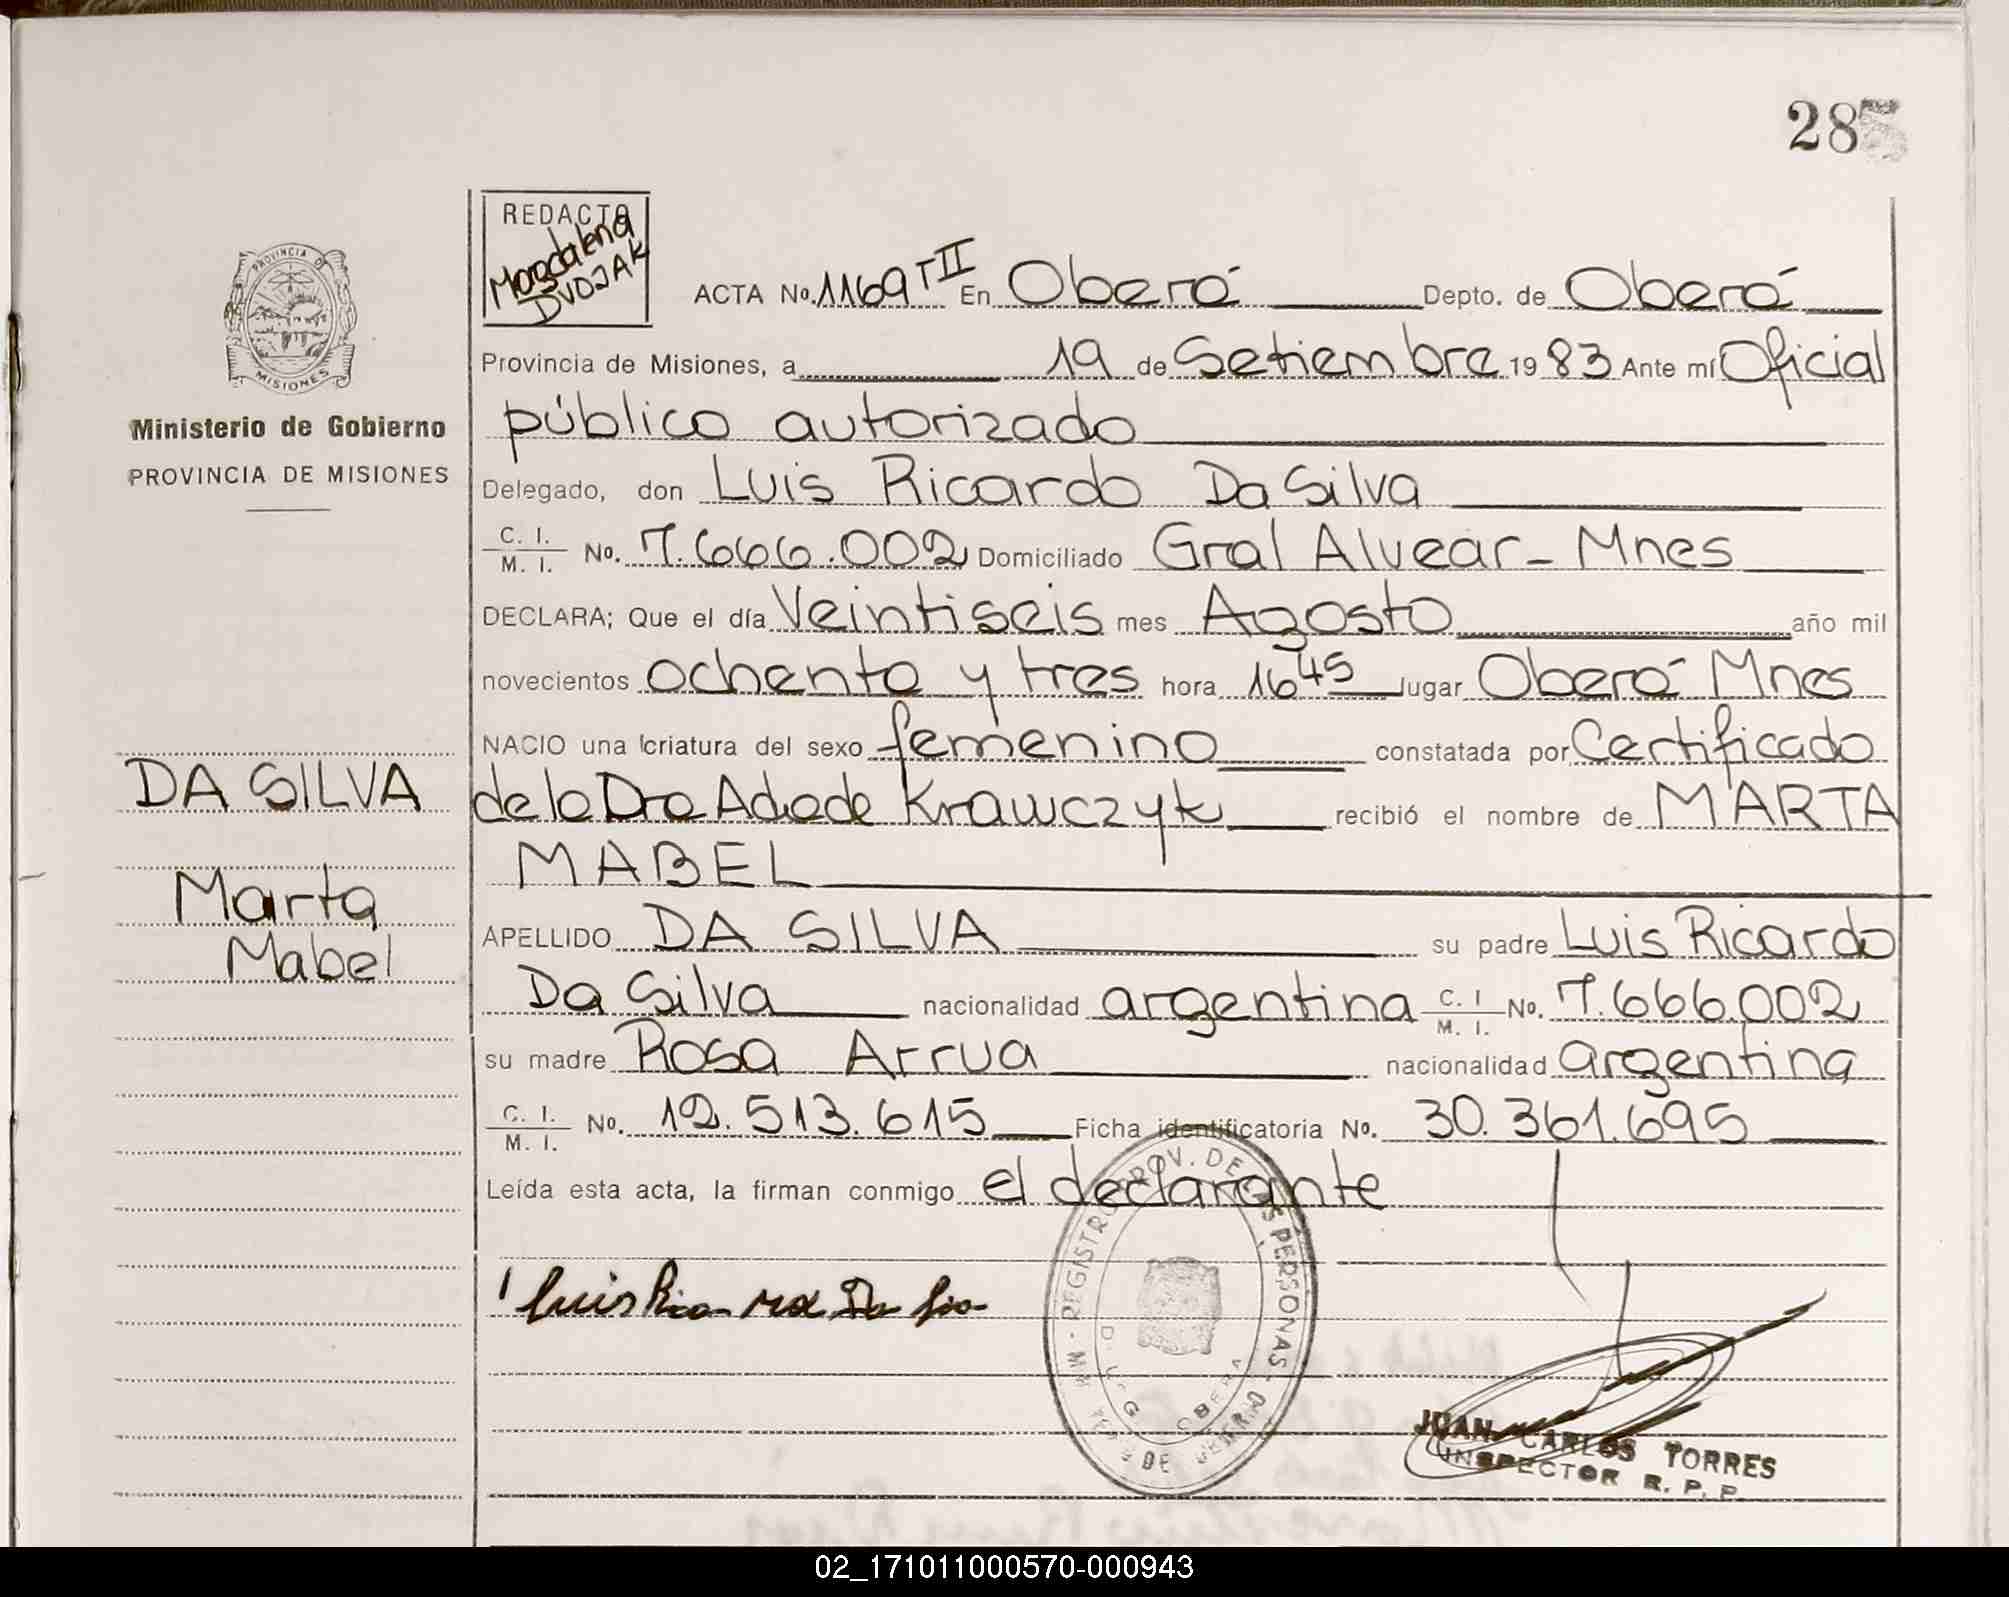 285
REDACTO
Magdalena
DVOJAK
PROVINCIA DE
MISIONES
Ministerio de Gobierno
PROVINCIA DE MISIONES
ACTA No. 1169 T II En Oberá Depto. de Oberá
Provincia de Misiones, a 19 de Setiembre 1983 Ante mí Oficial
público autorizado
Delegado, don Luis Ricardo Da Silva
C. I. / M. I. No. 7.666.002 Domiciliado Gral Alvear - Mnes
DECLARA; Que el día Veintiseis mes Agosto año mil
novecientos ochenta y tres hora 16 45 lugar Oberá Mnes
NACIO una criatura del sexo femenino constatada por Certificado
de la Dra Ada de Krawczyk recibió el nombre de MARTA
MABEL
APELLIDO DA SILVA su padre Luis Ricardo
Da Silva nacionalidad argentina C. I / M. I. No. 7.666.002
su madre Rosa Arrua nacionalidad argentina
C. I. / M. I. No. 12.513.615 Ficha identificatoria No. 30.361.695
Leída esta acta, la firman conmigo el declarante
DA SILVA
Marta
Mabel
Luis Ricardo Da
REGISTRO PROV. DE LAS PERSONAS
OBERA
JUAN CARLOS TORRES
INSPECTOR R. P. P.
02_171011000570-000943